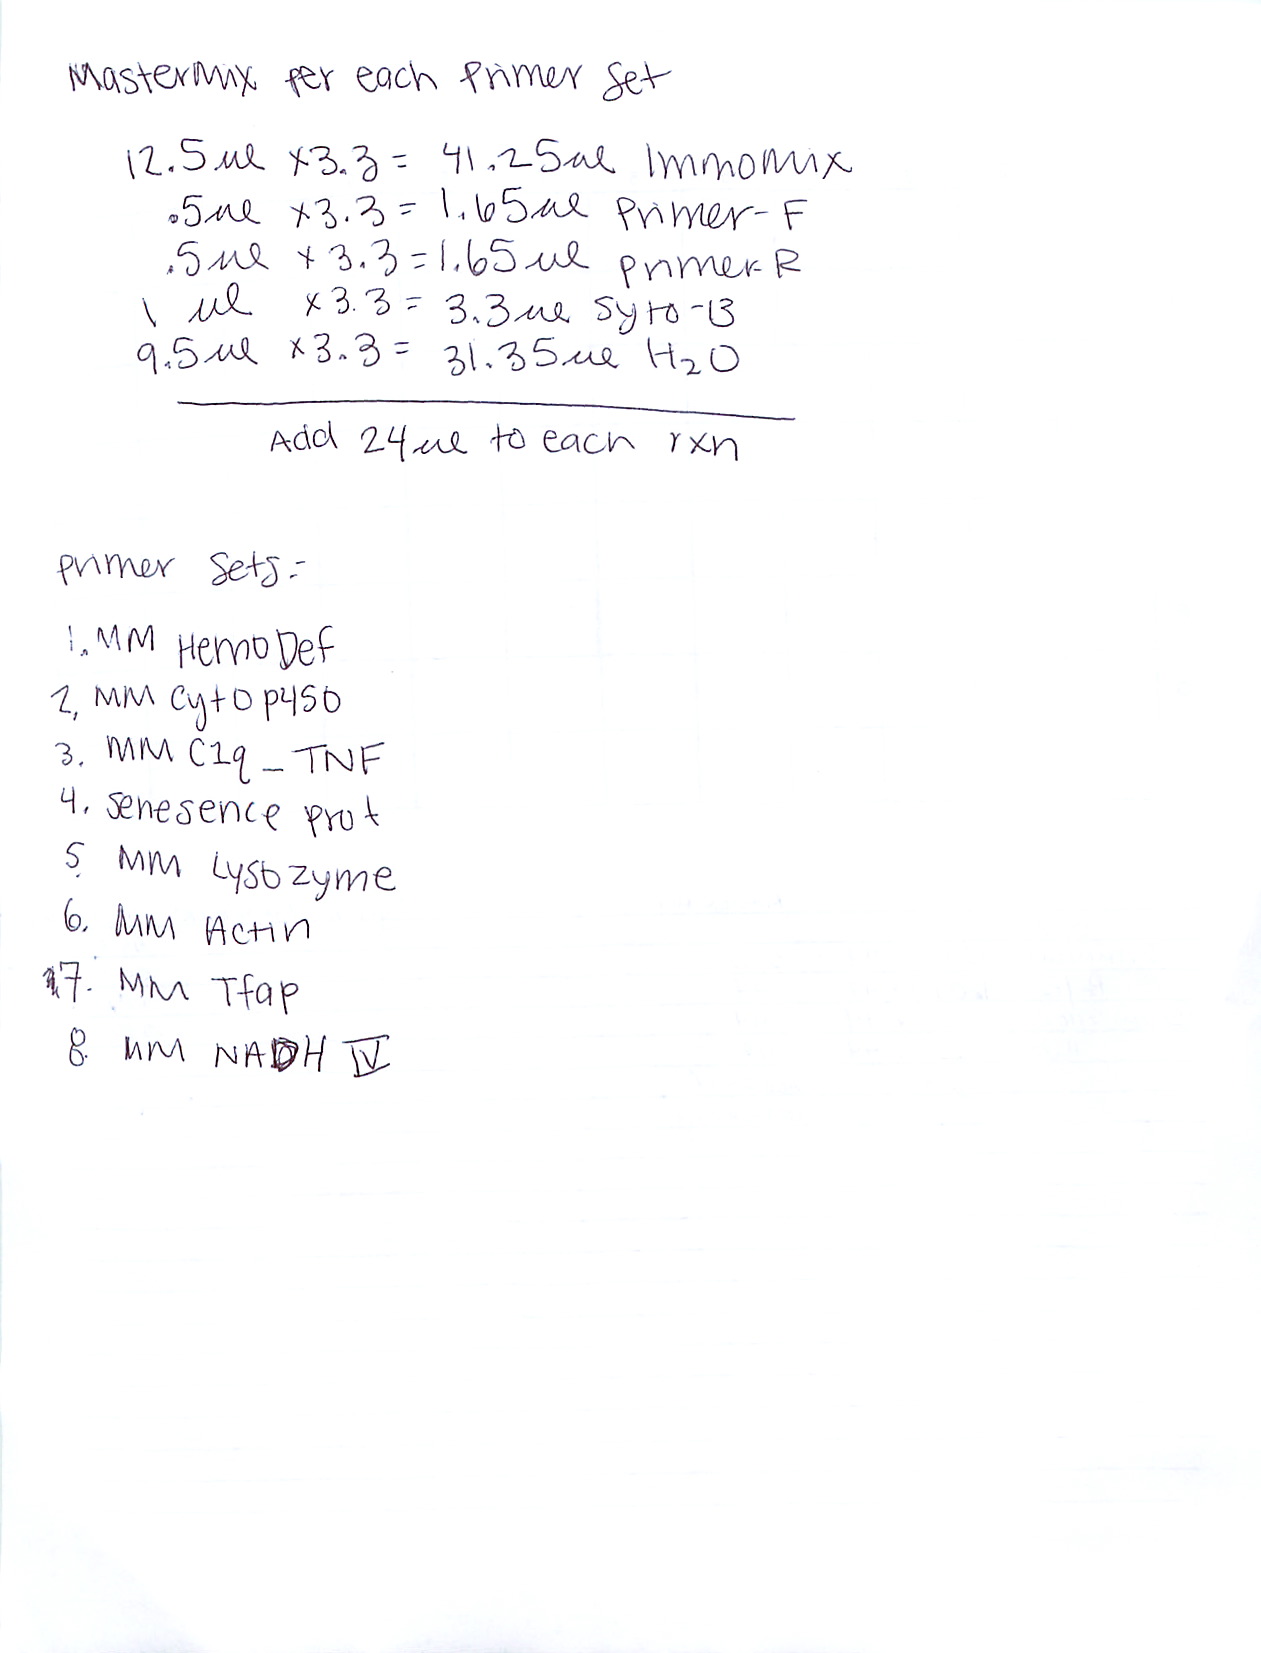 Mastermix per each Primer Set
12.5ul x3.3 = 41.25ul Immomix
.5ul x3.3 = 1.65ul Primer-F
.5ul x3.3 = 1.65ul primer R
1 ul x3.3 = 3.3ul Syto-13
9.5ul x3.3 = 31.35ul H2O
Add 24ul to each rxn
primer Sets:
1. MM HemoDef
2, MM Cyto p450
3. MM C1q_TNF
4. Senesence prot
5. MM Lysozyme
6. MM Actin
7. MM Tfap
8. MM NADH IV